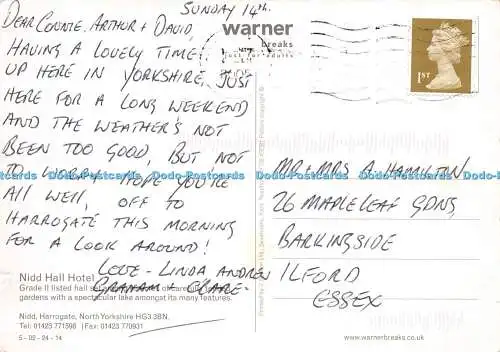 SUNDAY 14th.
DEAR CONNIE, ARTHUR & DAVID,
HAVING A LOVELY TIME
UP HERE IN YORKSHIRE, JUST
HERE FOR A LONG WEEKEND
AND THE WEATHER'S NOT
BEEN TOO GOOD, BUT NOT
TO WORRY HOPE YOU'RE
ALL WELL, OFF TO
HARROGATE THIS MORNING
FOR A LOOK AROUND!
LOVE - LINDA ANDREW
GRAHAM - CLARE -
Nidd Hall Hotel
Grade II listed hall set
gardens with a spectacular lake amongst its many features.
Nidd, Harrogate, North Yorkshire HG3 3BN.
Tel: 01423 771598 | Fax: 01423 770931
5 - 02 - 24 - 14
warner
breaks
just for adults
1ST
MR & MRS A. HAMILTON
26 MAPLELEAF GDNS,
BARKINGSIDE
ILFORD
ESSEX
www.warnerbreaks.co.uk
Dodo-Postcards Dodo-Postcards Dodo-Postcards Dodo-Postcards